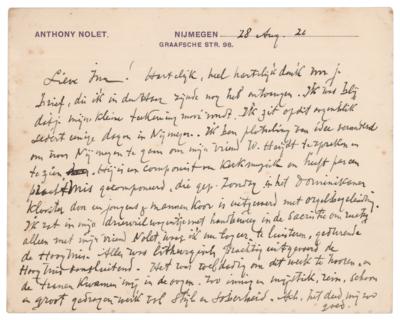 ANTHONY NOLET.
NIJMEGEN 28 Aug. 26
GRAAFSCHE STR. 98.
Lieve Ima! Hartelijk, heel hartelijk dank voor je
brief, die ik in den Haag zijnde nog heb ontvangen. Ik was blij
dat je mijn kleine teekening mooi vondt. Ik zit op dit oogenblik
sedert eenige dagen in Nijmegen. Ik ben plotseling van idee veranderd
om naar Nijmegen te gaan om mijn vriend W. te spreken en
te zien. Hij is en componist van Kerkmuziek en heeft pas een
Mis gecomponeerd, die gep. Zondag in het Dominikaner
Klooster door en jongens & mannenkoor is uitgevoerd met orgelbegeleiding.
Ik zat in mijn driewieler in de Sacristie en rustig
alleen met mijn vriend Nolet, waar ik nu logeer te luisteren, gedurende
de Hoogmis. Alles was lithurgisch prachtig uitgevoerd de
Hoogmis aansluitend. Het was toch heerlijk om dit werk te hooren, en
de tranen kwamen mij in de oogen. Zoo innig en mystiek, rein, schoon
en groot gedragen werk vol Stijl en Soberheid. Ach, het deed mij zoo
goed.